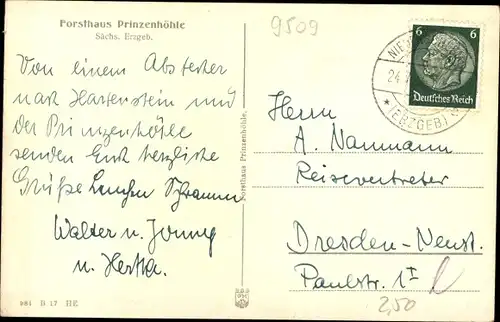 Forsthaus Prinzenhöhle
Sächs. Erzgeb.
Von einem Abstecher
nach Hartenstein und
der Prinzenhöhle
senden Euch herzliche
Grüße Lenchen Schramm
Walter u. Jonny
u. Hertha.
981 B 17 HE
Forsthaus Prinzenhöhle,
9509
6 6
Deutsches Reich
24.
* (ERZGEB)
Herrn
A. Naumann
Reisevertreter
Dresden-Neust.
Paulstr. 1 I
2,50